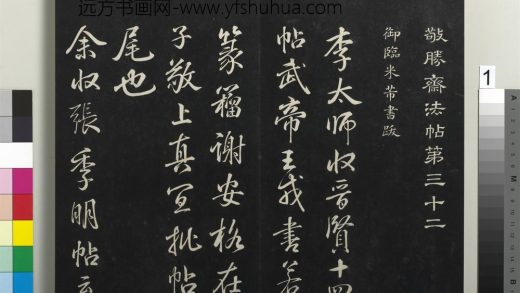 远方书画网- www.yfshuhua.com
敬勝齋法帖第三十二
御臨米芾書跋
李太師收晉賢十四
帖武帝王戎書若
篆籀謝安格在
子敬上真宜批帖
尾也
余收張季明帖云
1